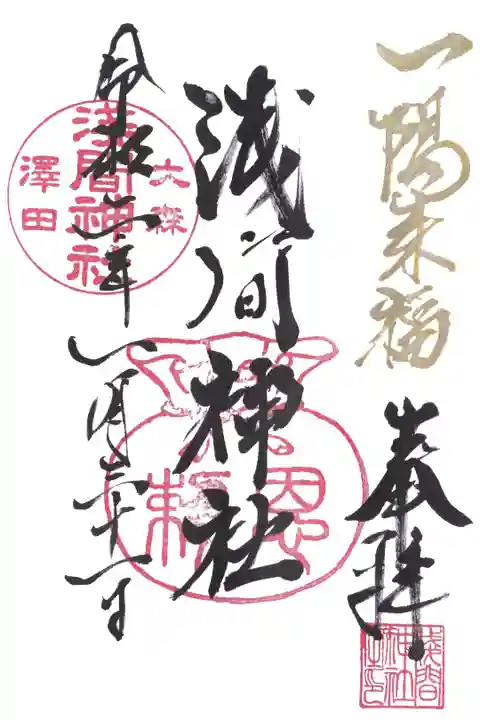 一陽来福
奉拝
浅間神社
令和二年一月三十一日
大森
浅間神社
澤田
恩
頼
浅間
神社
之印